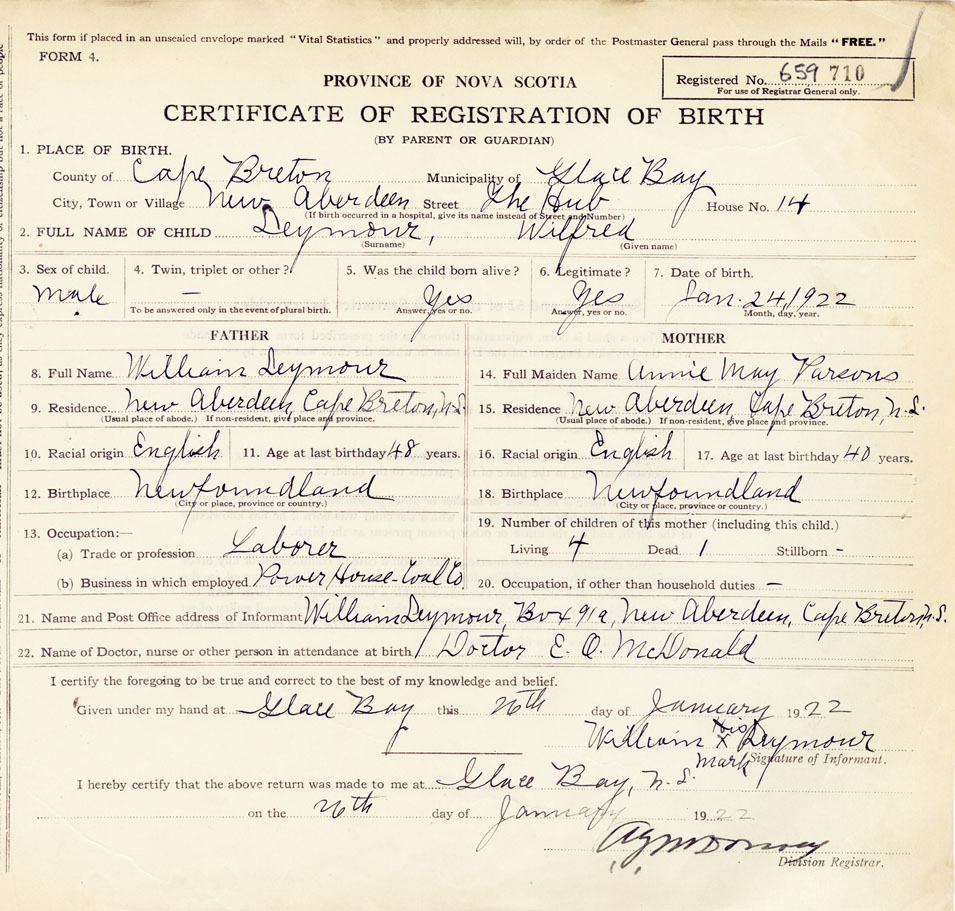 This form if placed in an unsealed envelope marked "Vital Statistics" and properly addressed will, by order of the Postmaster General pass through the Mails "FREE."
FORM 4.
PROVINCE OF NOVA SCOTIA
Registered No. 659 710
For use of Registrar General only.
CERTIFICATE OF REGISTRATION OF BIRTH
(BY PARENT OR GUARDIAN)
1. PLACE OF BIRTH.
County of Cape Breton Municipality of Glace Bay
City, Town or Village New Aberdeen Street The Hub House No. 14
(If birth occurred in a hospital, give its name instead of Street and Number)
2. FULL NAME OF CHILD Seymour, Wilfred
(Surname) (Given name)
3. Sex of child. 4. Twin, triplet or other? 5. Was the child born alive? 6. Legitimate? 7. Date of birth.
Male – Yes Yes Jan. 24, 1922
To be answered only in the event of plural birth. Answer, yes or no. Answer, yes or no. Month, day, year.
FATHER
8. Full Name William Seymour
9. Residence New Aberdeen, Cape Breton, N.S.
(Usual place of abode.) If non-resident, give place and province.
10. Racial origin English 11. Age at last birthday 48 years.
12. Birthplace Newfoundland
(City or place, province or country.)
13. Occupation:—
(a) Trade or profession Laborer
(b) Business in which employed Power House - Coal Co
MOTHER
14. Full Maiden Name Annie May Parsons
15. Residence New Aberdeen, Cape Breton, N.S.
(Usual place of abode.) If non-resident, give place and province.
16. Racial origin English 17. Age at last birthday 40 years.
18. Birthplace Newfoundland
(City or place, province or country.)
19. Number of children of this mother (including this child.)
Living 4 Dead 1 Stillborn -
20. Occupation, if other than household duties –
21. Name and Post Office address of Informant William Seymour, Box 91a, New Aberdeen, Cape Breton, N.S.
22. Name of Doctor, nurse or other person in attendance at birth. Doctor E. O. McDonald
I certify the foregoing to be true and correct to the best of my knowledge and belief.
Given under my hand at Glace Bay this 26th day of January 1922
William his X mark Seymour
Signature of Informant.
I hereby certify that the above return was made to me at Glace Bay, N.S.
on the 26th day of January 1922
Division Registrar.